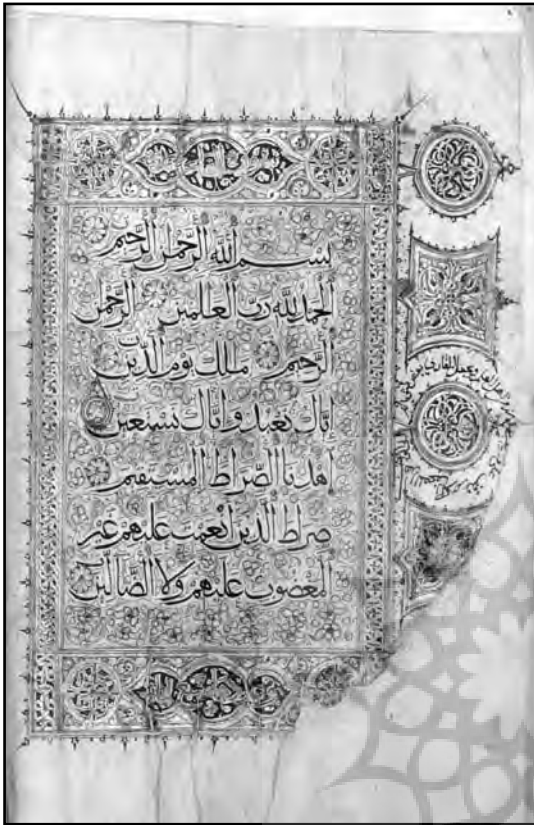 بسم الله الرحمن الرحيم
الحمد لله رب العالمين الرحمن
الرحيم ملك يوم الدين
إياك نعبد وإياك نستعين
اهدنا الصراط المستقيم
صراط الذين أنعمت عليهم غير
المغضوب عليهم ولا الضالين